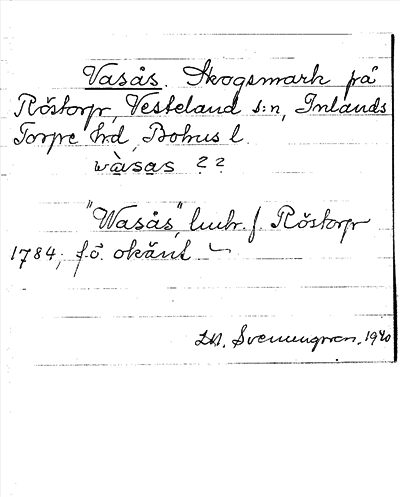 Vasås. Skogsmark på
Röstorp, Vesteland s:n, Inlands
Torpe hrd, Bohus l.
wàsas ??
"Wasås", lucr. f. Röstorp
1784, f.ö. okänt.
1940